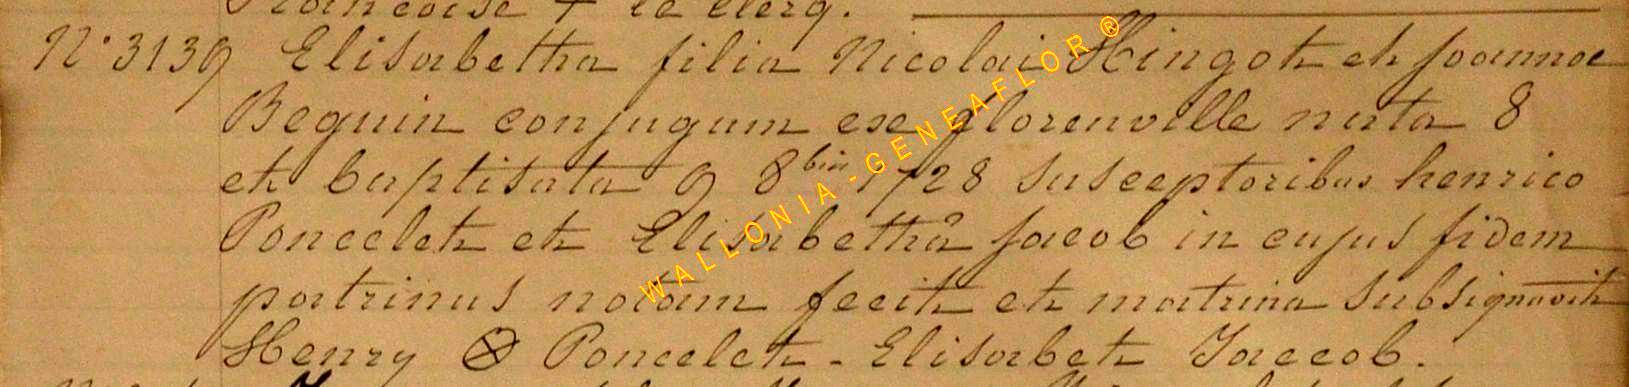 Francoise + le clerq.
N° 3139 Elisabetha filia Nicolai Hingot et Joannae
Beguin conjugum ex florenville nata 8
et baptisata 9 8bris 1728 susceptoribus henrico
Poncelet et Elisabethâ Jacob in cujus fidem
patrinus notam fecit et matrina subsignavit
Henry ⊗ Poncelet - Elisabet Jaccob.
WALLONIA-GENEAFLOR®